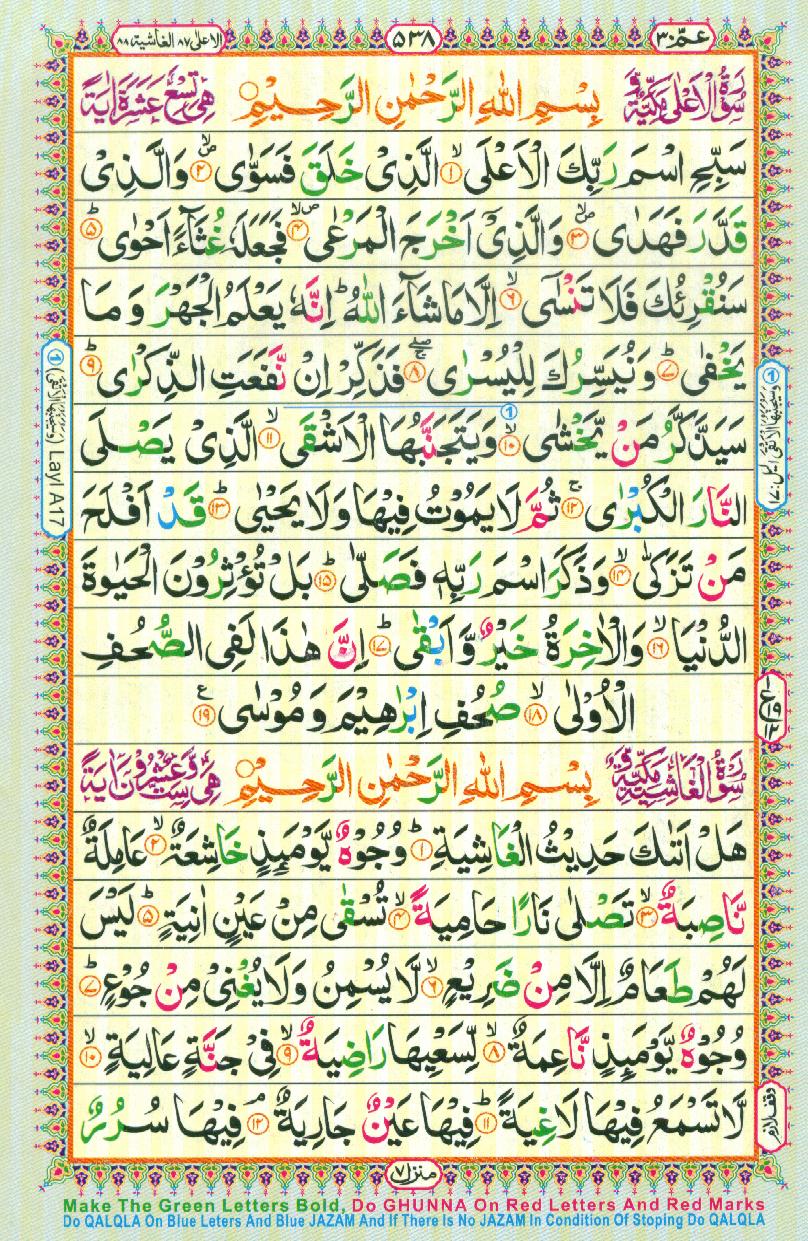 الاعلى ٨٧ الغاشية ٨٨
٥٣٨
عمّ ٣٠
سُوْرَةُ الْاَعْلٰى مَكِّيَّةٌ بِسْمِ اللّٰهِ الرَّحْمٰنِ الرَّحِيْمِ هِيَ تِسْعَ عَشَرَةَ اٰيَةً
سَبِّحِ اسْمَ رَبِّكَ الْاَعْلَى ۙ﴿۱﴾ الَّذِىْ خَلَقَ فَسَوّٰى ۪ۙ﴿۲﴾ وَالَّذِىْ
قَدَّرَ فَهَدٰى ۪ۙ﴿۳﴾ وَالَّذِىْٓ اَخْرَجَ الْمَرْعٰى ۪ۙ﴿۴﴾ فَجَعَلَهٗ غُثَآءً اَحْوٰى ؕ﴿۵﴾
سَنُقْرِئُكَ فَلَا تَنْسٰٓى ۙ﴿۶﴾ اِلَّا مَا شَآءَ اللّٰهُ ؕ اِنَّهٗ يَعْلَمُ الْجَهْرَ وَ مَا
يَخْفٰى ؕ﴿۷﴾ وَنُيَسِّرُكَ لِلْيُسْرٰى ۖۚ﴿۸﴾ فَذَكِّرْ اِنْ نَّفَعَتِ الذِّكْرٰى ؕ﴿۹﴾
سَيَذَّكَّرُ مَنْ يَّخْشٰى ۙ﴿۱۰﴾ وَيَتَجَنَّبُهَا الْاَشْقَى ۙ﴿۱۱﴾ الَّذِىْ يَصْلَى
النَّارَ الْكُبْرٰى ۚ﴿۱۲﴾ ثُمَّ لَا يَمُوْتُ فِيْهَا وَلَا يَحْيٰى ؕ﴿۱۳﴾ قَدْ اَفْلَحَ
مَنْ تَزَكّٰى ۙ﴿۱۴﴾ وَذَكَرَ اسْمَ رَبِّهٖ فَصَلّٰى ؕ﴿۱۵﴾ بَلْ تُؤْثِرُوْنَ الْحَيٰوةَ
الدُّنْيَا ۙ﴿۱۶﴾ وَالْاٰخِرَةُ خَيْرٌ وَّ اَبْقٰى ؕ﴿۱۷﴾ اِنَّ هٰذَا لَفِى الصُّحُفِ
الْاُوْلٰى ۙ﴿۱۸﴾ صُحُفِ اِبْرٰهِيْمَ وَ مُوْسٰى ﴿۱۹﴾ ع
سُوْرَةُ الْغَاشِيَةِ مَكِّيَّةٌ بِسْمِ اللّٰهِ الرَّحْمٰنِ الرَّحِيْمِ هِيَ سِتٌّ وَّعِشْرُوْنَ اٰيَةً
هَلْ اَتٰىكَ حَدِيْثُ الْغَاشِيَةِ ؕ﴿۱﴾ وُجُوْهٌ يَّوْمَئِذٍ خَاشِعَةٌ ۙ﴿۲﴾ عَامِلَةٌ
نَّاصِبَةٌ ۙ﴿۳﴾ تَصْلٰى نَارًا حَامِيَةً ۙ﴿۴﴾ تُسْقٰى مِنْ عَيْنٍ اٰنِيَةٍ ؕ﴿۵﴾ لَيْسَ
لَهُمْ طَعَامٌ اِلَّا مِنْ ضَرِيْعٍ ۙ﴿۶﴾ لَّا يُسْمِنُ وَلَا يُغْنِىْ مِنْ جُوْعٍ ؕ﴿۷﴾
وُجُوْهٌ يَّوْمَئِذٍ نَّاعِمَةٌ ۙ﴿۸﴾ لِّسَعْيِهَا رَاضِيَةٌ ۙ﴿۹﴾ فِىْ جَنَّةٍ عَالِيَةٍ ۙ﴿۱۰﴾
لَّا تَسْمَعُ فِيْهَا لَاغِيَةً ؕ﴿۱۱﴾ فِيْهَا عَيْنٌ جَارِيَةٌ ۘ﴿۱۲﴾ فِيْهَا سُرُرٌ
① (وسيجنبها الاتقى) Layl A17
وقف لازم
منزل ٧
Make The Green Letters Bold, Do GHUNNA On Red Letters And Red Marks
Do QALQLA On Blue Leters And Blue JAZAM And If There Is No JAZAM In Condition Of Stoping Do QALQLA